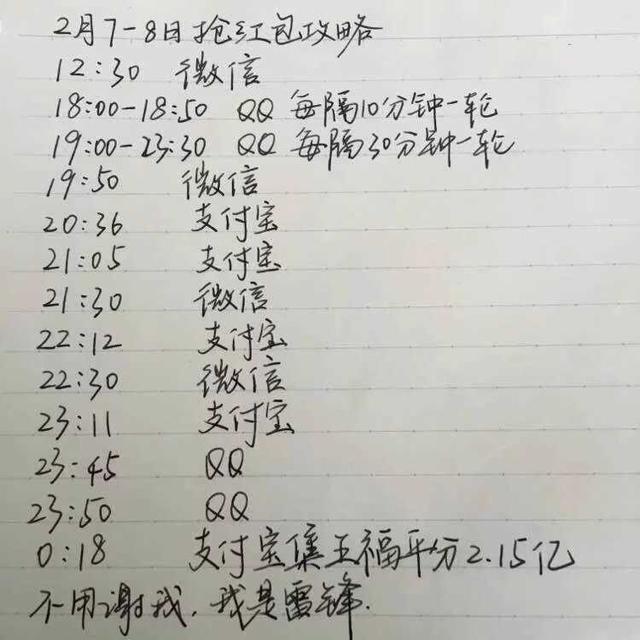 2月7-8日抢红包攻略
12:30 微信
18:00-18:50 QQ 每隔10分钟一轮
19:00-23:30 QQ 每隔30分钟一轮
19:50 微信
20:36 支付宝
21:05 支付宝
21:30 微信
22:12 支付宝
22:30 微信
23:11 支付宝
23:45 QQ
23:50 QQ
0:18 支付宝集五福平分2.15亿
不用谢我,我是雷锋.